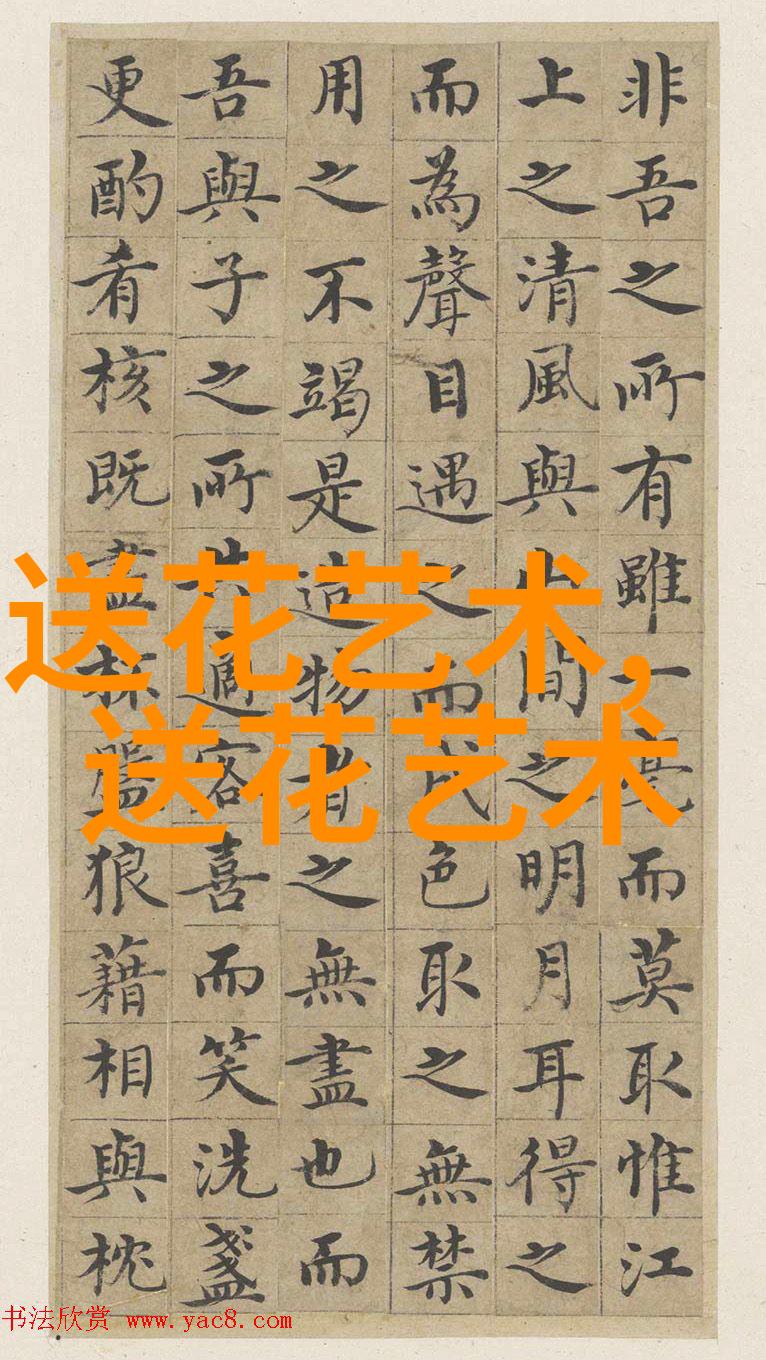 非吾之所有雖一毫而莫取惟江
上之清風與山間之明月耳得之
而為聲目遇之而成色取之無禁
用之不竭是造物者之無盡也而
吾與子之所共適客喜而笑洗盞
更酌肴核既盡杯盤狼藉相與枕
送花艺术,
送花艺术
书法欣赏 www.yac8.com